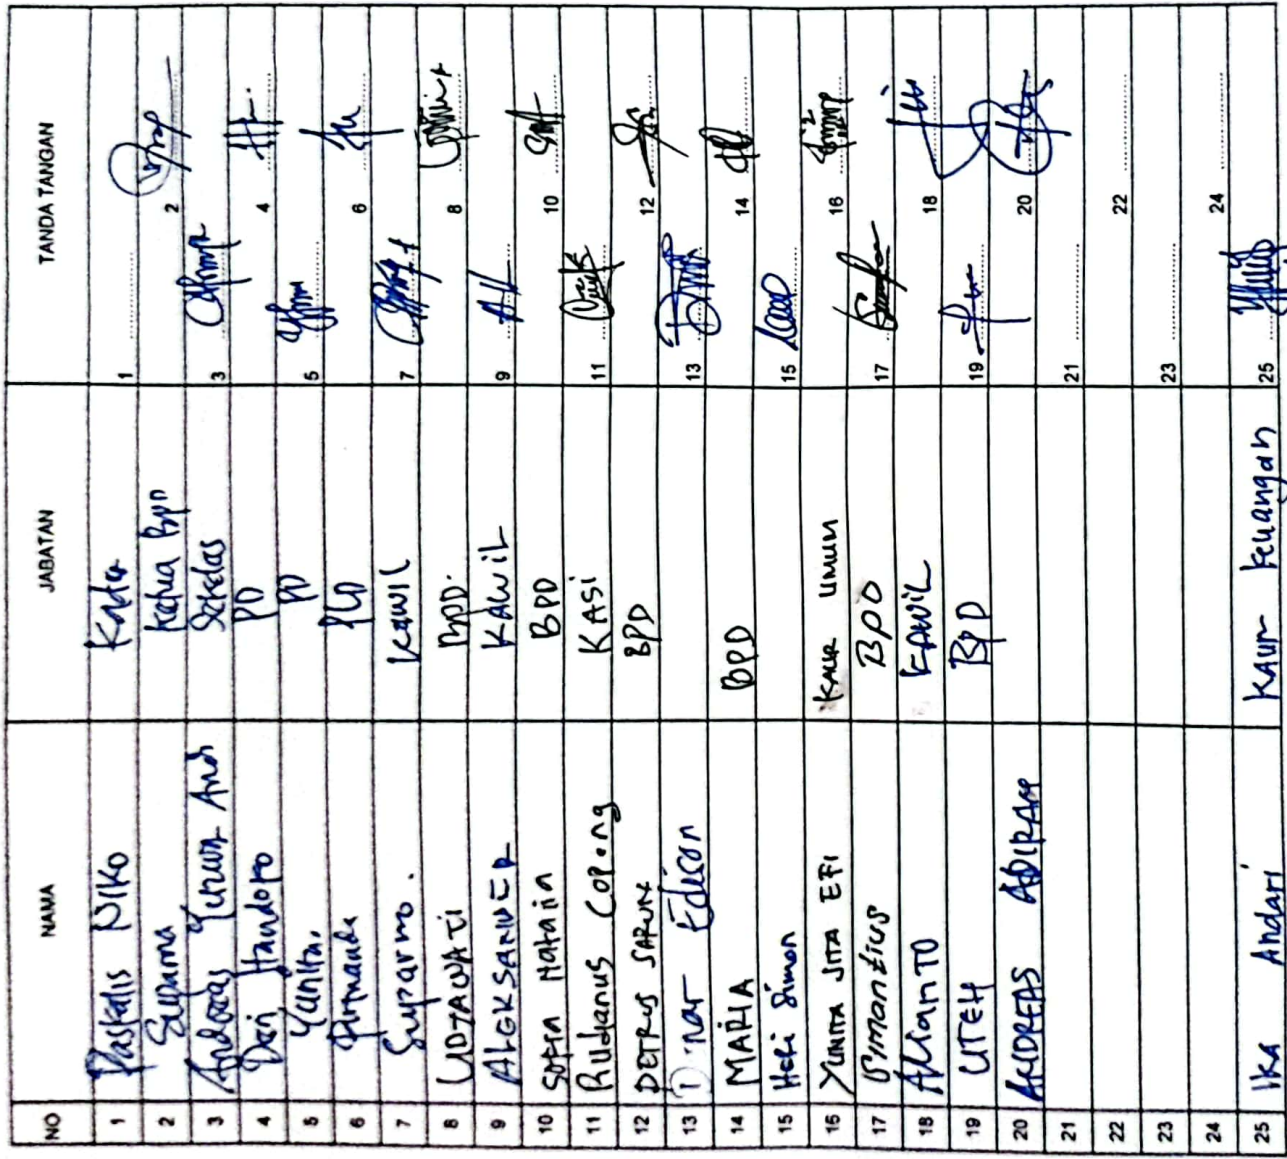 NO NAMA JABATAN TANDA TANGAN
1 Paskalis Niko 1
2 Suparna Ketua BPD 2
3 Andreas Sekdes 3
4 Deri Handoko PD 4
5 Yunita. PD 5
6 Firmanda PLD 6
7 Suparmo. Kawil 7
8 UDJAWATI BPD. 8
9 ALEKSANDER KAWIL 9
10 SOFIA Natalia BPD 10
11 Rudyanus Copong KASi 11
12 PETRUS SARUN BPD 12
13 Dinar Edison 13
14 MARIA BPD 14
15 Heri Simon 15
16 YUNITA SITA EFI KAUR UMUM 16
17 Simontius BPD 17
18 ALIANTO KAWIL 18
19 UTEH BPD 19
20 ANDREAS ADIRAM 20
21 21
22 22
23 23
24 24
25 Ika Andari KAUR Keuangan 25